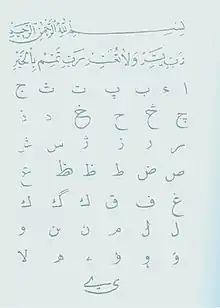 بسم الله الرحمن الرحيم
رب يسر ولا تعسر رب تمم بالخير
ا ء ب پ ت ث ج
چ څ ح خ د ذ
ر ز ژ س ش
ص ض ط ظ ع
غ ف ق ك گ ك
ل م ن و
و ء ه لا
ى ي